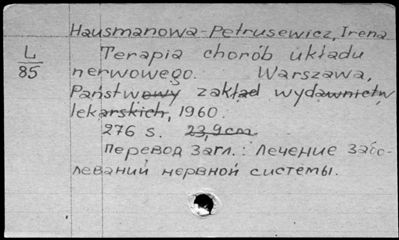 Hausmanowa-Petrusewicz, Irena
L
85
Terapia chorób układu
nerwowego. Warszawa,
Państwowy zakład wydawnictw
lekarskich, 1960.
276 s. 23,9cm
Перевод загл.: Лечение забо-
леваний нервной системы.